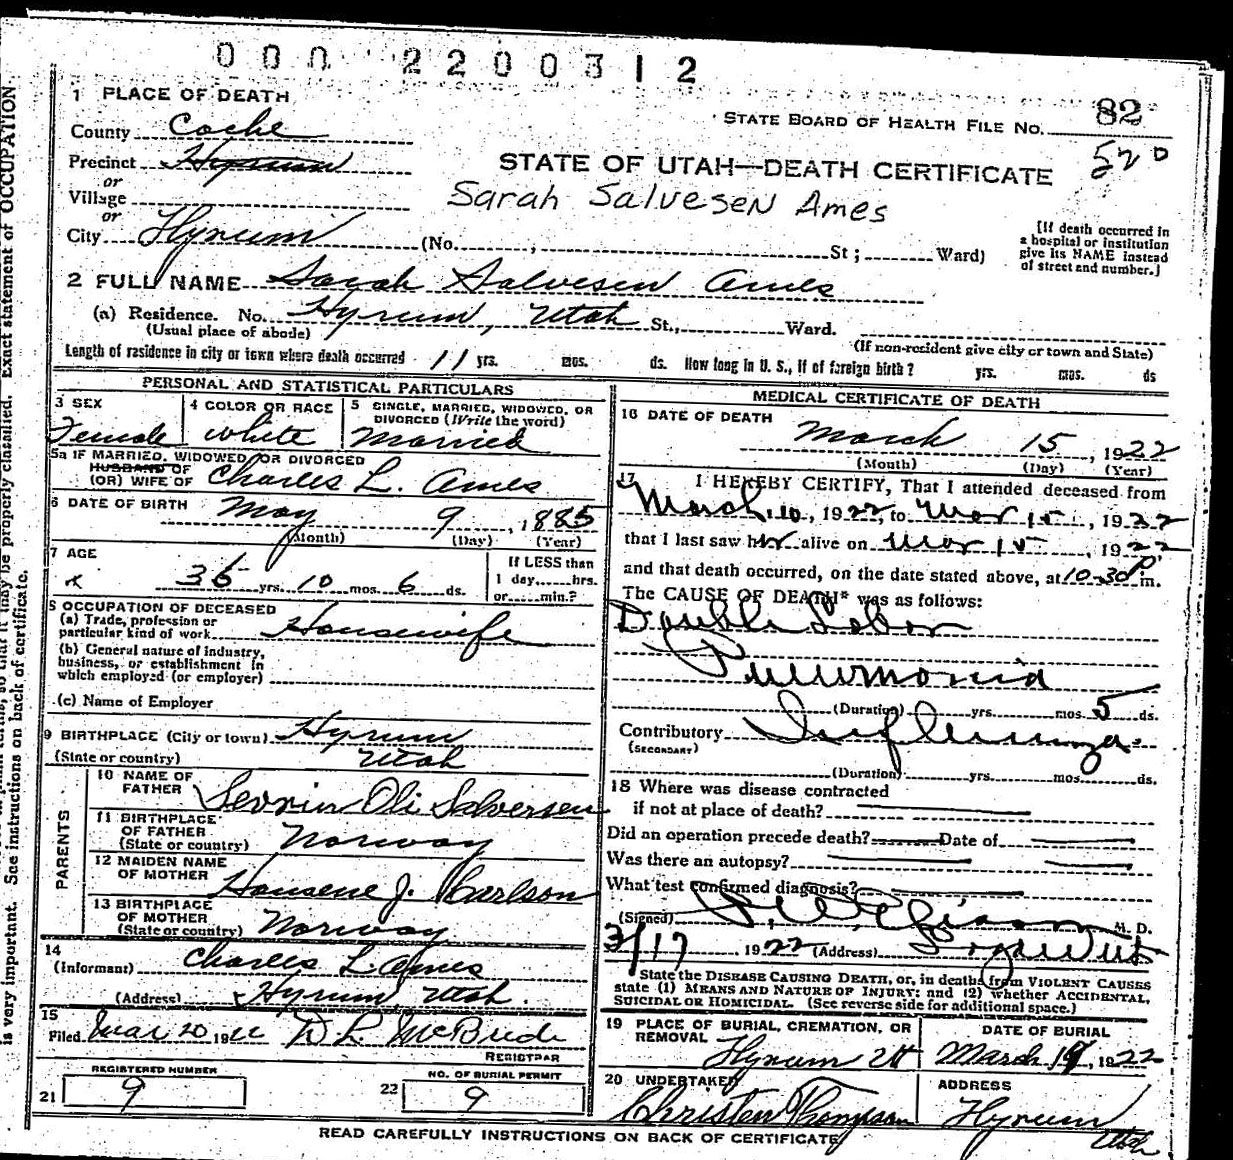 000 2200312
1 PLACE OF DEATH
STATE BOARD OF HEALTH FILE NO. 82
520
County Cache
Precinct Hyrum
STATE OF UTAH—DEATH CERTIFICATE
or
Village
Sarah Salvesen Ames
or
City Hyrum (No. , St; Ward)
[If death occurred in
a hospital or institution
give its NAME instead
of street and number.]
2 FULL NAME Sarah Salvesen Ames
(a) Residence. No. Hyrum, Utah St., Ward.
(Usual place of abode)
(If non-resident give city or town and State)
Length of residence in city or town where death occurred 11 yrs. mos. ds. How long in U. S., if of foreign birth? yrs. mos. ds
PERSONAL AND STATISTICAL PARTICULARS
3 SEX
Female
4 COLOR OR RACE
White
5 SINGLE, MARRIED, WIDOWED, OR
DIVORCED (Write the word)
Married
5a IF MARRIED, WIDOWED OR DIVORCED
HUSBAND OF
(OR) WIFE OF Charles L. Ames
6 DATE OF BIRTH May 9, 1885
(Month) (Day) (Year)
7 AGE
36 yrs. 10 mos. 6 ds.
If LESS than
1 day, hrs.
or min.?
8 OCCUPATION OF DECEASED
(a) Trade, profession or
particular kind of work Housewife
(b) General nature of industry,
business, or establishment in
which employed (or employer)
(c) Name of Employer
9 BIRTHPLACE (City or town) Hyrum
(State or country) Utah
PARENTS
10 NAME OF
FATHER Sevrin Oli Salversen
11 BIRTHPLACE
OF FATHER
(State or country) Norway
12 MAIDEN NAME
OF MOTHER Hansene J. Karlson
13 BIRTHPLACE
OF MOTHER
(State or country) Norway
14
(Informant) Charles L Ames
(Address) Hyrum, Utah.
15
Filed Mar 20 1922 D L McBride
REGISTRAR
REGISTERED NUMBER
21 9
NO. OF BURIAL PERMIT
22 9
MEDICAL CERTIFICATE OF DEATH
16 DATE OF DEATH
March 15, 1922
(Month) (Day) (Year)
17 I HEREBY CERTIFY, That I attended deceased from
March 10, 1922, to Mar 15, 1922
that I last saw her alive on Mar 15, 1922
and that death occurred, on the date stated above, at 10-30 P m.
The CAUSE OF DEATH* was as follows:
Double Lobar
Pneumonia
(Duration) yrs. mos. 5 ds.
Contributory Influenza
(SECONDARY)
(Duration) yrs. mos. ds.
18 Where was disease contracted
if not at place of death?
Did an operation precede death? Date of
Was there an autopsy?
What test confirmed diagnosis?
(Signed) M. D.
3/17 1922 (Address)
State the DISEASE CAUSING DEATH, or, in deaths from VIOLENT CAUSES
state (1) MEANS AND NATURE OF INJURY; and (2) whether ACCIDENTAL,
SUICIDAL OR HOMICIDAL. (See reverse side for additional space.)
19 PLACE OF BURIAL, CREMATION, OR
REMOVAL Hyrum Ut
DATE OF BURIAL
March 19, 1922
20 UNDERTAKER
Christen Thompson
ADDRESS
Hyrum
Utah
READ CAREFULLY INSTRUCTIONS ON BACK OF CERTIFICATE
is very important. See instructions on back of certificate.
so that it may be properly classified. Exact statement of OCCUPATION